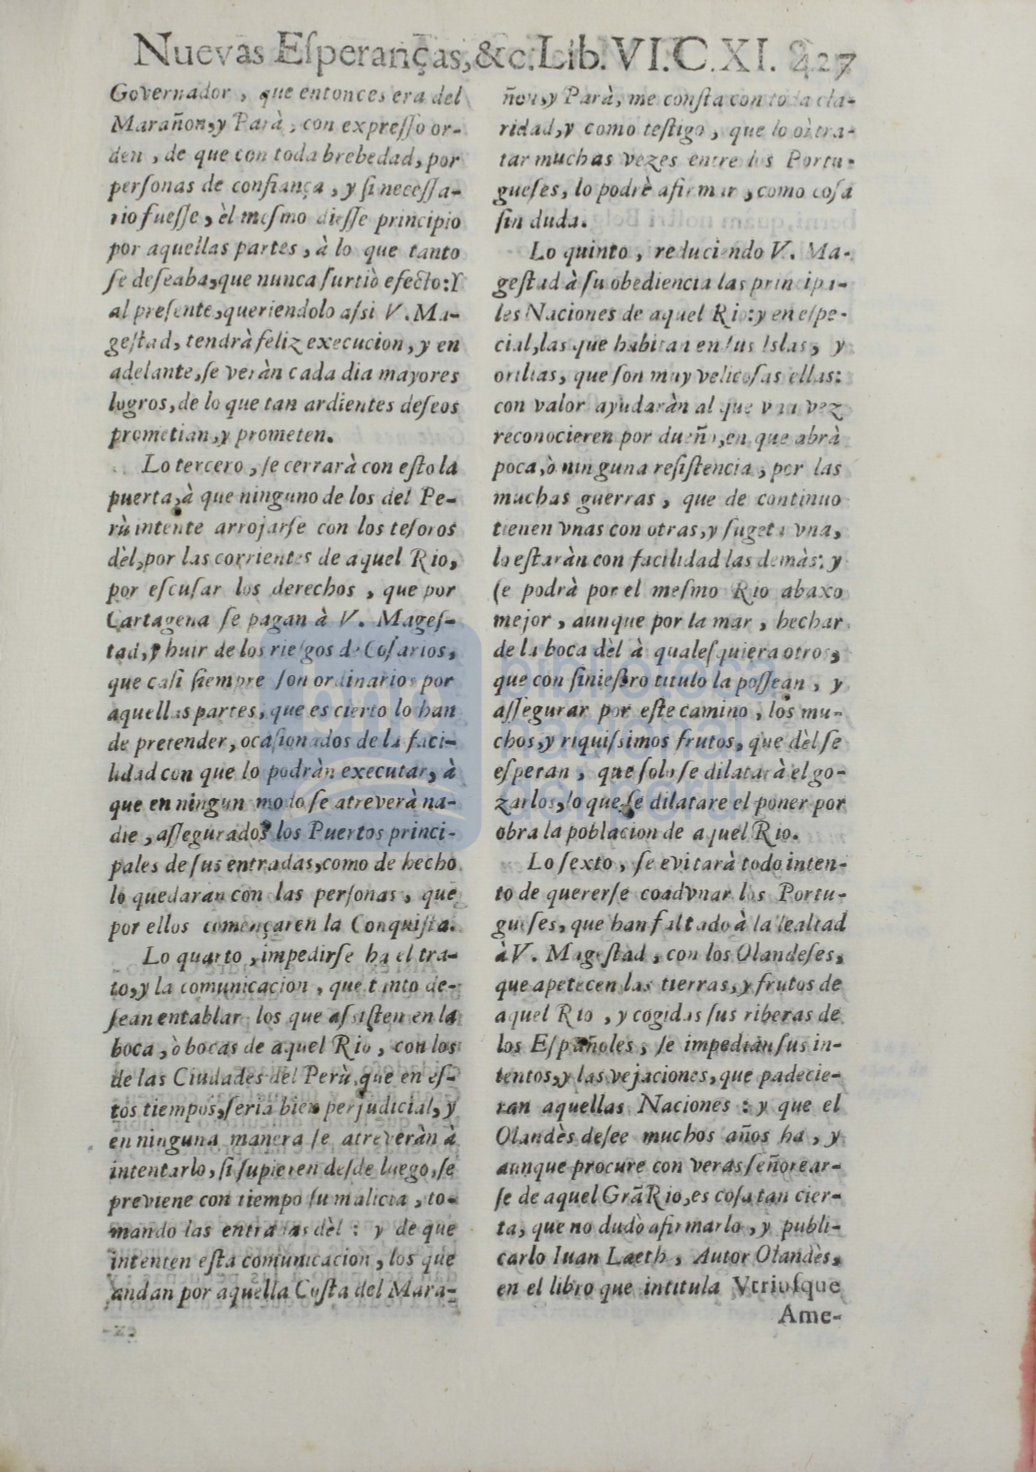 Nuevas Eſperanças, &c. Lib. VI. C. XI. 427
Governador, que entonces era del
Marañon, y Parà, con expreſſo or-
den, de que con toda brebedad, por
perſonas de confiança, y ſi neceſſa-
rio fueſſe, èl meſmo dieſſe principio
por aquellas partes, à lo que tanto
ſe deſeaba, que nunca ſurtiò efecto: Y
al preſente, queriendolo aſsi V. Ma-
geſtad, tendrà feliz execucion, y en
adelante, ſe veràn cada dia mayores
logros, de lo que tan ardientes deſeos
prometian, y prometen.
Lo tercero, ſe cerrarà con eſto la
puerta, à que ninguno de los del Pe-
rù intente arrojarſe con los teſoros
dèl, por las corrientes de aquel Rio,
por eſcuſar los derechos, que por
Cartagena ſe pagan à V. Mageſ-
tad, y huir de los rieſgos de Coſarios,
que caſi ſiempre ſon ordinarios por
aquellas partes, que es cierto lo han
de pretender, ocaſionados de la faci-
lidad con que lo podràn executar, à
que en ningun modo ſe atreverà na-
die, aſſegurados los Puertos princi-
pales de ſus entradas, como de hecho
lo quedaran con las perſonas, que
por ellos començaren la Conquiſta.
Lo quarto, impedirſe ha el tra-
to, y la comunicacion, que tanto de-
ſean entablar los que aſsiſten en la
boca, ò bocas de aquel Rio, con los
de las Ciudades del Perù, que en eſ-
tos tiempos, ſeria bien perjudicial, y
en ninguna manera ſe atreveràn à
intentarlo, ſi ſupieren deſde luego, ſe
previene con tiempo ſu malicia, to-
mando las entradas dèl: y de que
intenten eſta comunicacion, los que
andan por aquella Coſta del Mara-
ñon, y Parà, me conſta con toda cla-
ridad, y como teſtigo, que lo oì tra-
tar muchas vezes entre los Portu-
gueſes, lo podrè afirmar, como coſa
ſin duda.
Lo quinto, reduciendo V. Ma-
geſtad à ſu obediencia las principa-
les Naciones de aquel Rio: y en eſpe-
cial, las que habitan en ſus Islas, y
orillas, que ſon muy velicoſas ellas:
con valor ayudaràn al que vna vez
reconocieren por dueño, en que abrà
poca, ò ninguna reſiſtencia, por las
muchas guerras, que de continuo
tienen vnas con otras, y ſugeta vna,
lo eſtaràn con facilidad las demàs: y
ſe podrà por el meſmo Rio abaxo
mejor, aunque por la mar, hechar
de la boca dèl à qualeſquiera otros,
que con ſinieſtro titulo la poſſean, y
aſſegurar por eſte camino, los mu-
chos, y riquiſsimos frutos, que dèl ſe
eſperan, que ſolo ſe dilatarà el go-
zarlos, lo que ſe dilatare el poner por
obra la poblacion de aquel Rio.
Lo ſexto, ſe evitarà todo inten-
to de quererſe coadvnar los Portu-
gueſes, que han faltado à la lealtad
à V. Mageſtad, con los Olandeſes,
que apetecen las tierras, y frutos de
aquel Rio, y cogidas ſus riberas de
los Eſpañoles, ſe impediàn ſus in-
tentos, y las vejaciones, que padecie-
ran aquellas Naciones: y que el
Olandès deſee muchos años ha, y
aunque procure con veras ſeñorear-
ſe de aquel Grã Rio, es coſa tan cier-
ta, que no dudò afirmarlo, y publi-
carlo Iuan Laeth, Autor Olandès,
en el libro que intitula Vtriuſque
Ame-
biblioteca
nacional
del Perú